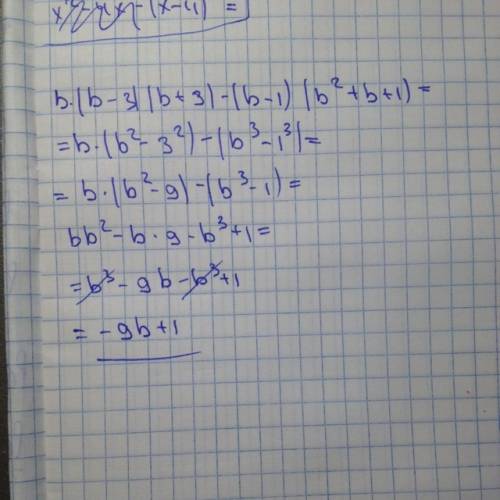 b·(b-3)(b+3)-(b-1)(b²+b+1)=
=b·(b²-3²)-(b³-1³)=
=b·(b²-9)-(b³-1)=
bb²-b·9-b³+1=
=b³-9b-b³+1
=-9b+1